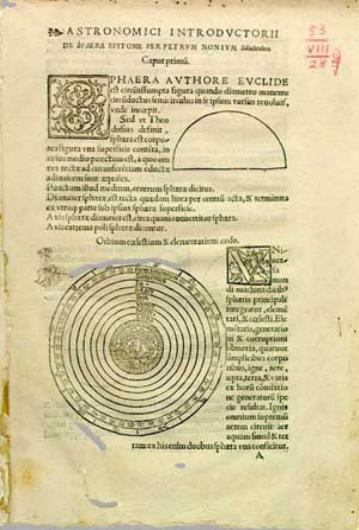 ASTRONOMICI INTRODVCTORII
DE SPAERA EPITOME PER PETRVM NONIVM
Caput primū.
SPHAERA AVTHORE EVCLIDE
est circūassumpta figura quando diametro manente
circūductus semicirculus in se ipsum rursus reuoluit,
vnde incepit.
Sed vt Theo
dosius definit,
sphæra est corpo
rea figura vna superficie contēta, in
cuius medio punctum est, a quo om
nes rectæ ad circunferētiam eductæ
adinuicem sunt æquales.
Punctum illud medium, centrum sphæræ dicitur.
Diameter sphæræ, est recta quædam linea per centrū acta, & terminata
ex vtraq; parte sub ipsius sphæræ superficie.
Axis sphæræ diameter est, circa quam conuertitur sphæra.
Axis extrema poli sphæræ dicuntur.
Orbium cœlestium & elementarium ordo.
VNi
uersa
mun
di machina duab9
sphæris principali
integratur, elemē
tari, & cœlesti. Ele
mētaris, generatio
ni & corruptioni
obnoxia, quatuor
simplicibus corpo
ribus, igne, aere,
aqua, terra, & variis
ex horū cōmixtio
ne generatorū spe
cie resultat. Ignis
omnium supremū
aerem circuit: aer
aquam simul & ter
ram ex his enim duobus sphæra vna conficitur.
A
53
VIII
28